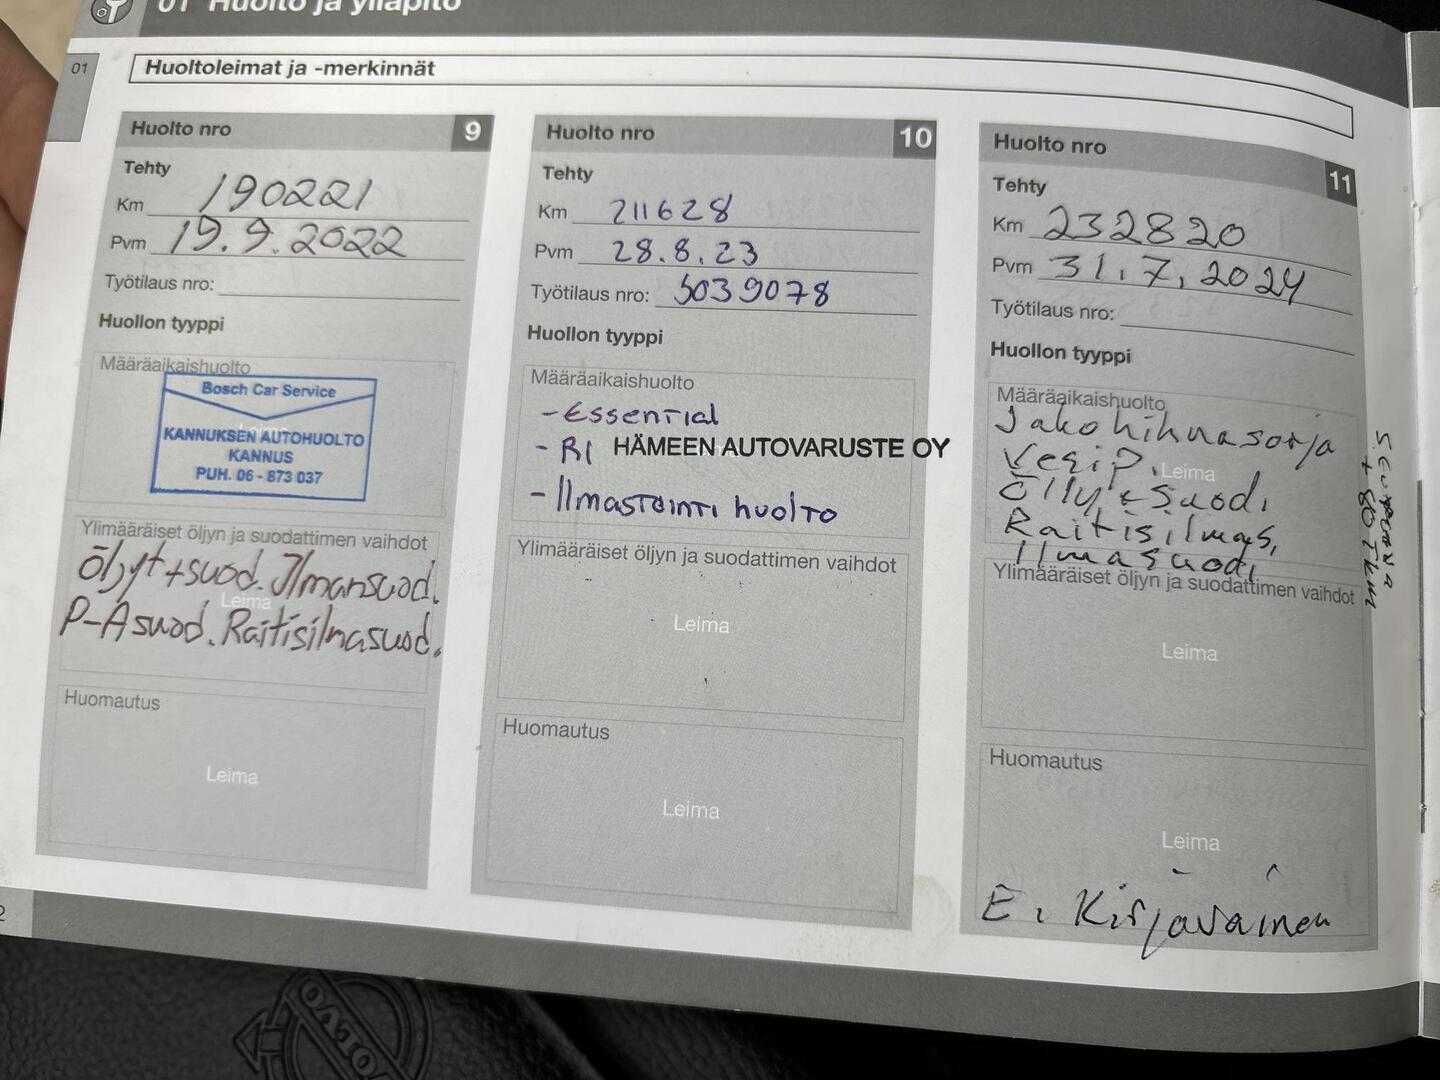 01 Huolto ja ylläpito
01
Huoltoleimat ja -merkinnät
Huolto nro 9
Tehty
Km 190221
Pvm 19.9.2022
Työtilaus nro:
Huollon tyyppi
Määräaikaishuolto
Bosch Car Service
Leima
KANNUKSEN AUTOHUOLTO
KANNUS
PUH. 06 - 873 037
Ylimääräiset öljyn ja suodattimen vaihdot
Öljyt+suod. Ilmansuod.
Leima
P-A suod. Raitisilmasuod.
Huomautus
Leima
Huolto nro 10
Tehty
Km 211628
Pvm 28.8.23
Työtilaus nro: 5039078
Huollon tyyppi
Määräaikaishuolto
- Essential
- RI HÄMEEN AUTOVARUSTE OY
- Ilmastointi huolto
Ylimääräiset öljyn ja suodattimen vaihdot
Leima
Huomautus
Leima
Huolto nro 11
Tehty
Km 232820
Pvm 31.7.2024
Työtilaus nro:
Huollon tyyppi
Määräaikaishuolto
Jakohihnasarja
Vesip. Leima
Öljy + Suod.
Raitisilmas.
Ilmasuod.
Ylimääräiset öljyn ja suodattimen vaihdot
Leima
Huomautus
Leima
E. Kirjavainen
Seuraava
+ 80 Tkm
2
VOLVO